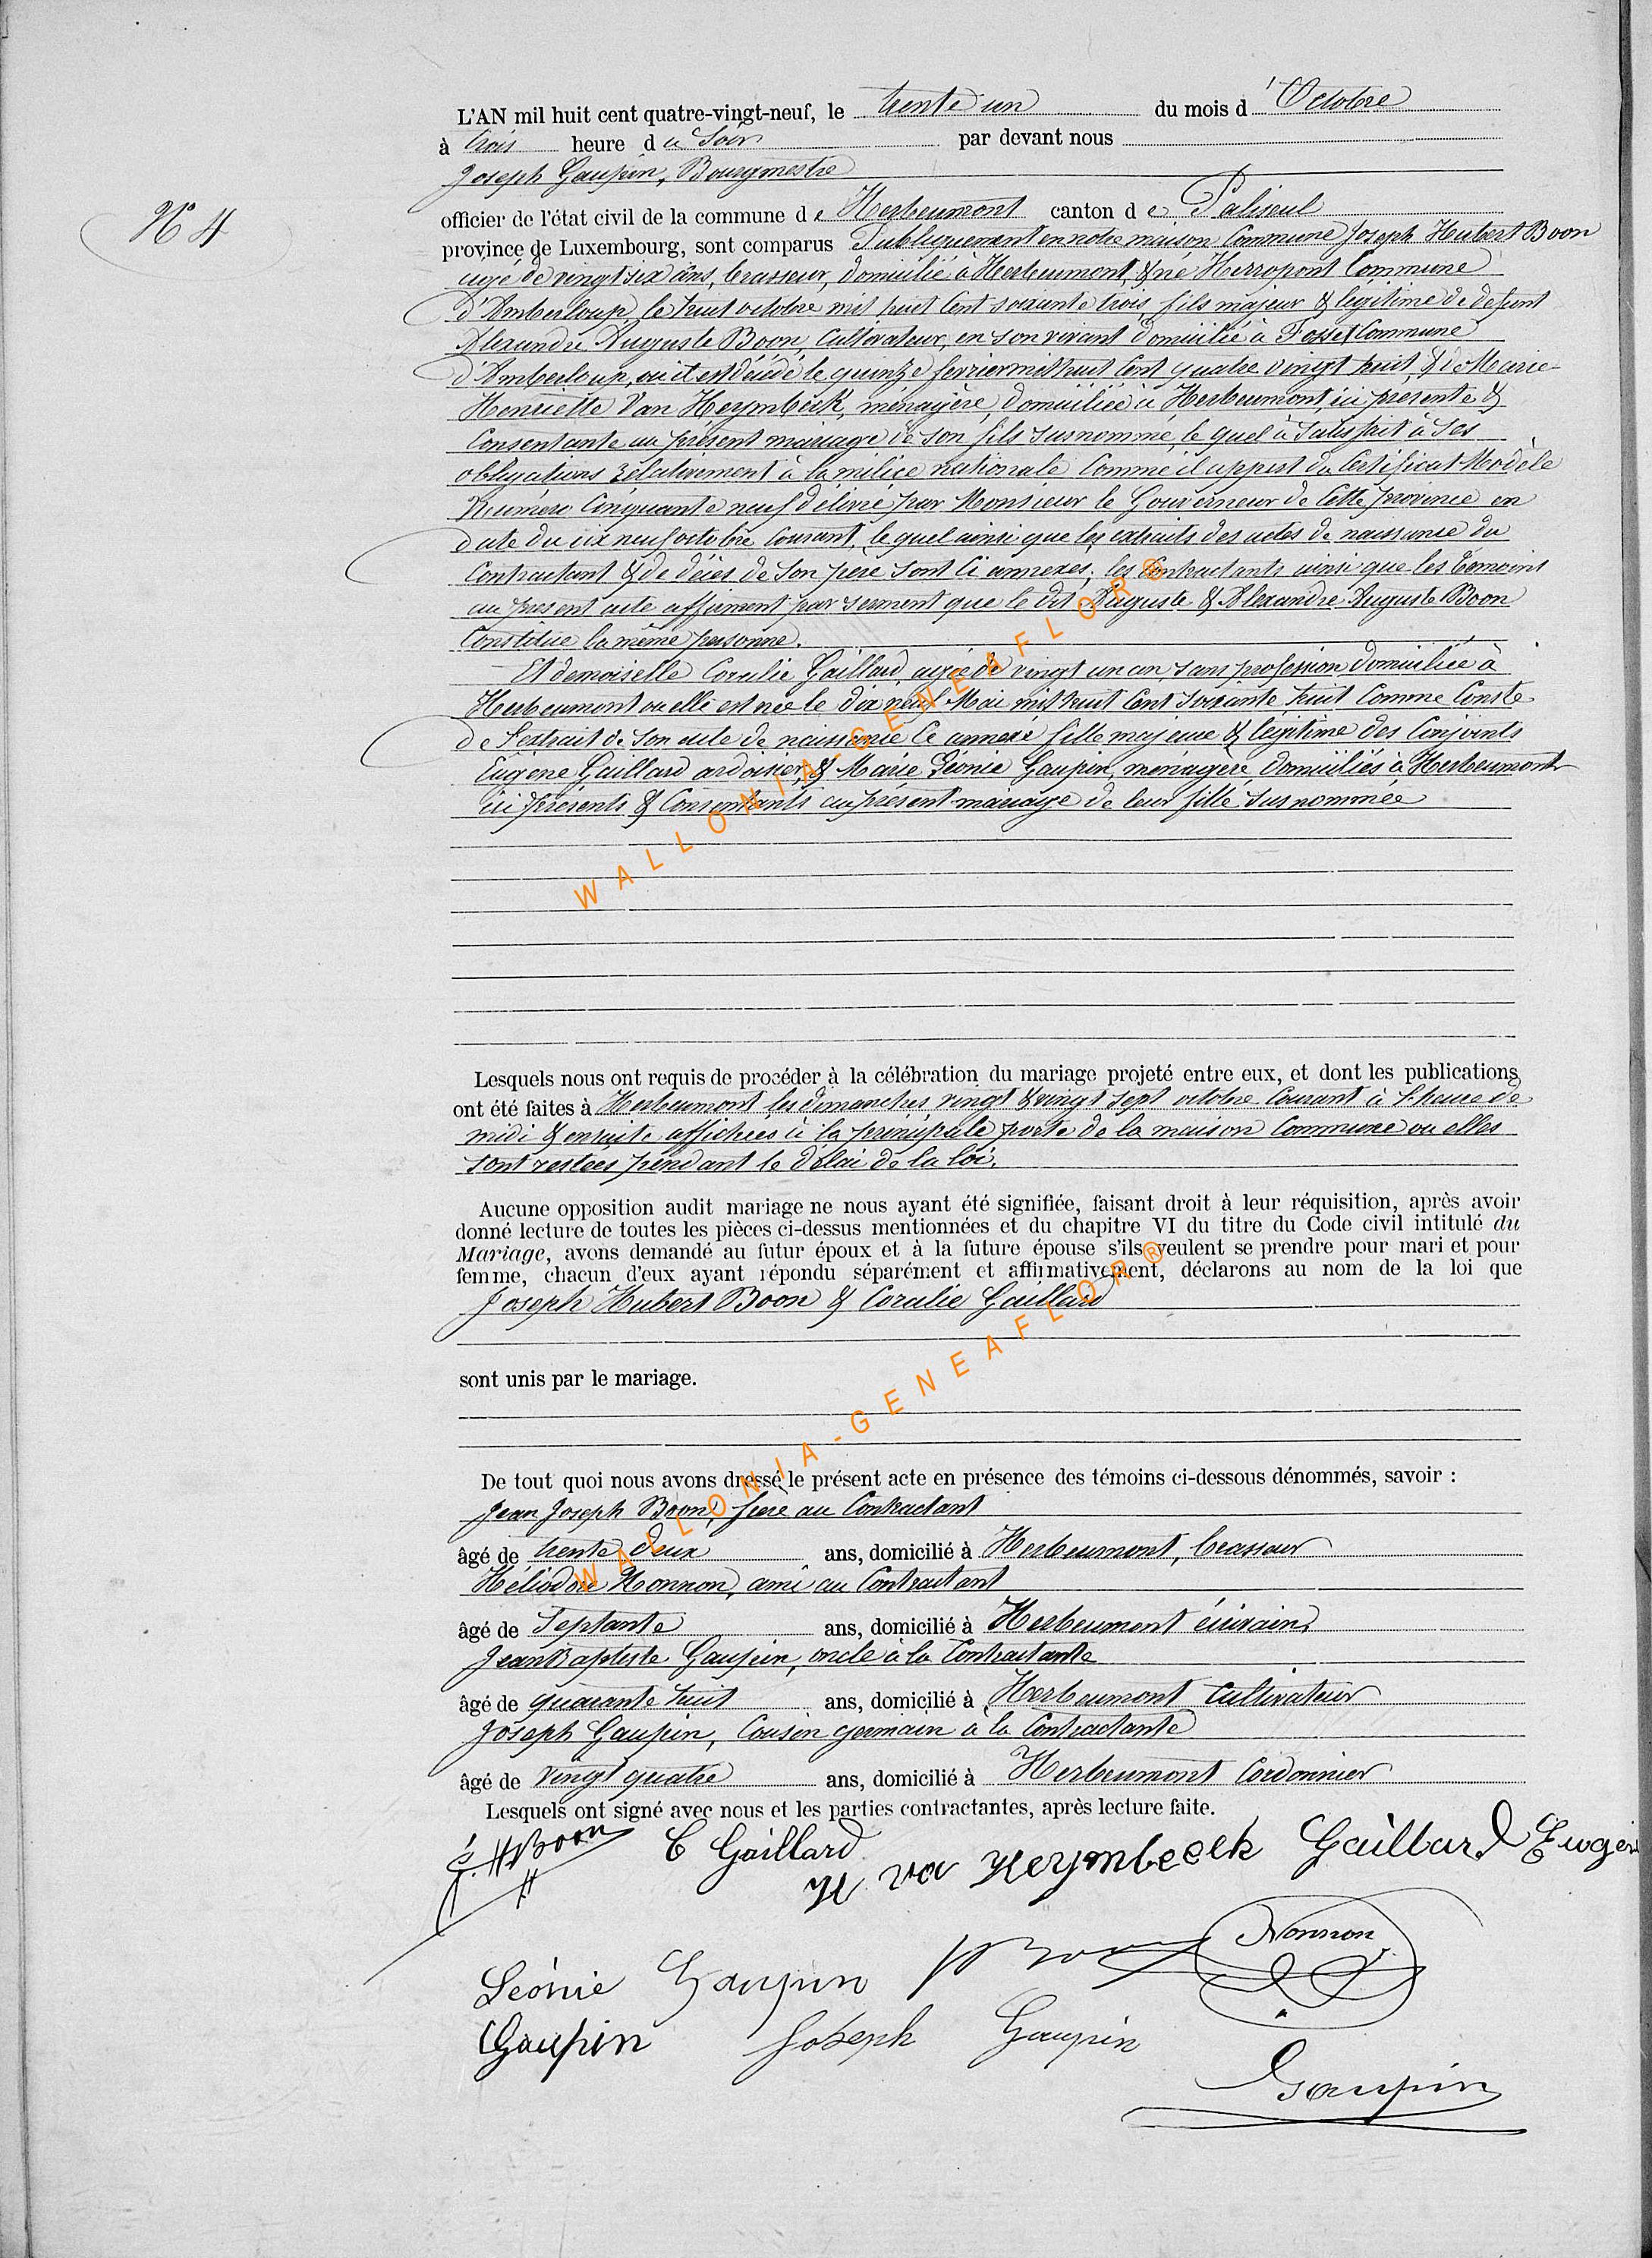 L'AN mil huit cent quatre-vingt-neuf, le trente un du mois d'Octobre
à trois heure du Soir par devant nous
Joseph Gaupin, Bourgmestre
N° 4
officier de l'état civil de la commune de Herbeumont canton de Paliseul
province de Luxembourg, sont comparus Publiquement en notre maison Commune Joseph Hubert Boon
agé de vingt six ans, brasseur, domicilié à Herbeumont, & né Herropont Commune
d'Amberloup, le huit octobre mil huit Cent soixante trois, fils majeur & légitime de defunt
Alexandre Auguste Boon, Cultivateur, en son vivant domicilié à Fosset Commune
d'Amberloup, où il est décédé le quinze fevrier mil huit Cent quatre vingt huit, & de Marie
Henriette Van Heymbeek, ménagère, domiciliée à Herbeumont, ici présente &
Consentante au présent mariage de son fils susnommé, le quel à Satisfait à Ses
obligations relativement à la milice nationale Comme il appert du Certificat Modèle
Numéro Cinquante neuf délivré par Monsieur le Gouverneur de Cette province en
date du dix neuf octobre Courant, le quel ainsi que les extraits des actes de naissance du
Contractant & de décès de Son père Sont Ci annexés; les Contractants ainsi que les témoins
au present acte affirment par serment que le dit Auguste & Alexandre Auguste Boon
Constitue la même personne.
Et demoiselle Coralie Gaillard, agée de vingt un an sans profession domiciliée à
Herbeumont ou elle est née le dix neuf Mai mil huit Cent soixante huit Comme Conste
de l'extrait de Son acte de naissance Ci annexé fille majeure & légitime des Conjoints
Eugène Gaillard ardoisier, & Marie Léonie Gaupin, ménagère domiciliés à Herbeumont
ici présents & Consentants au présent mariage de leur fille susnommée
WALLONIA-GENEAFLOR®
Lesquels nous ont requis de procéder à la célébration du mariage projeté entre eux, et dont les publications
ont été faites à Herbeumont les dimanches vingt & vingt sept octobre Courant à l'heure de
midi & ensuite affichées à la principale porte de la maison Commune ou elles
sont restées pendant le délai de la loi.
Aucune opposition audit mariage ne nous ayant été signifiée, faisant droit à leur réquisition, après avoir
donné lecture de toutes les pièces ci-dessus mentionnées et du chapitre VI du titre du Code civil intitulé du
Mariage, avons demandé au futur époux et à la future épouse s'ils veulent se prendre pour mari et pour
femme, chacun d'eux ayant répondu séparément et affirmativement, déclarons au nom de la loi que
Joseph Hubert Boon & Coralie Gaillard
sont unis par le mariage.
WALLONIA-GENEAFLOR®
De tout quoi nous avons dressé le présent acte en présence des témoins ci-dessous dénommés, savoir :
Jean Joseph Boon, frère au Contractant
âgé de trente deux ans, domicilié à Herbeumont, brasseur
Héliodore Nonnon, ami au Contractant
âgé de Septante ans, domicilié à Herbeumont écrivain
Jean Baptiste Gaupin, oncle à la Contractante
âgé de quarante huit ans, domicilié à Herbeumont Cultivateur
Joseph Gaupin, Cousin germain à la Contractante
âgé de vingt quatre ans, domicilié à Herbeumont Cordonnier
Lesquels ont signé avec nous et les parties contractantes, après lecture faite.
J. H Boon C Gaillard H va Heymbeeck Gaillard Eugèn
Léonie Gaupin Boon Nonnon
Gaupin Joseph Gaupin
Gaupin